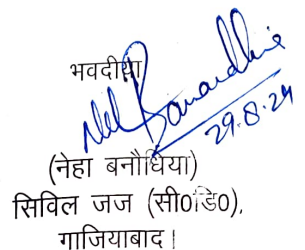 भवदीया
29.8.24
(नेहा बनौधिया)
सिविल जज (सी0डि0),
गाजियाबाद।